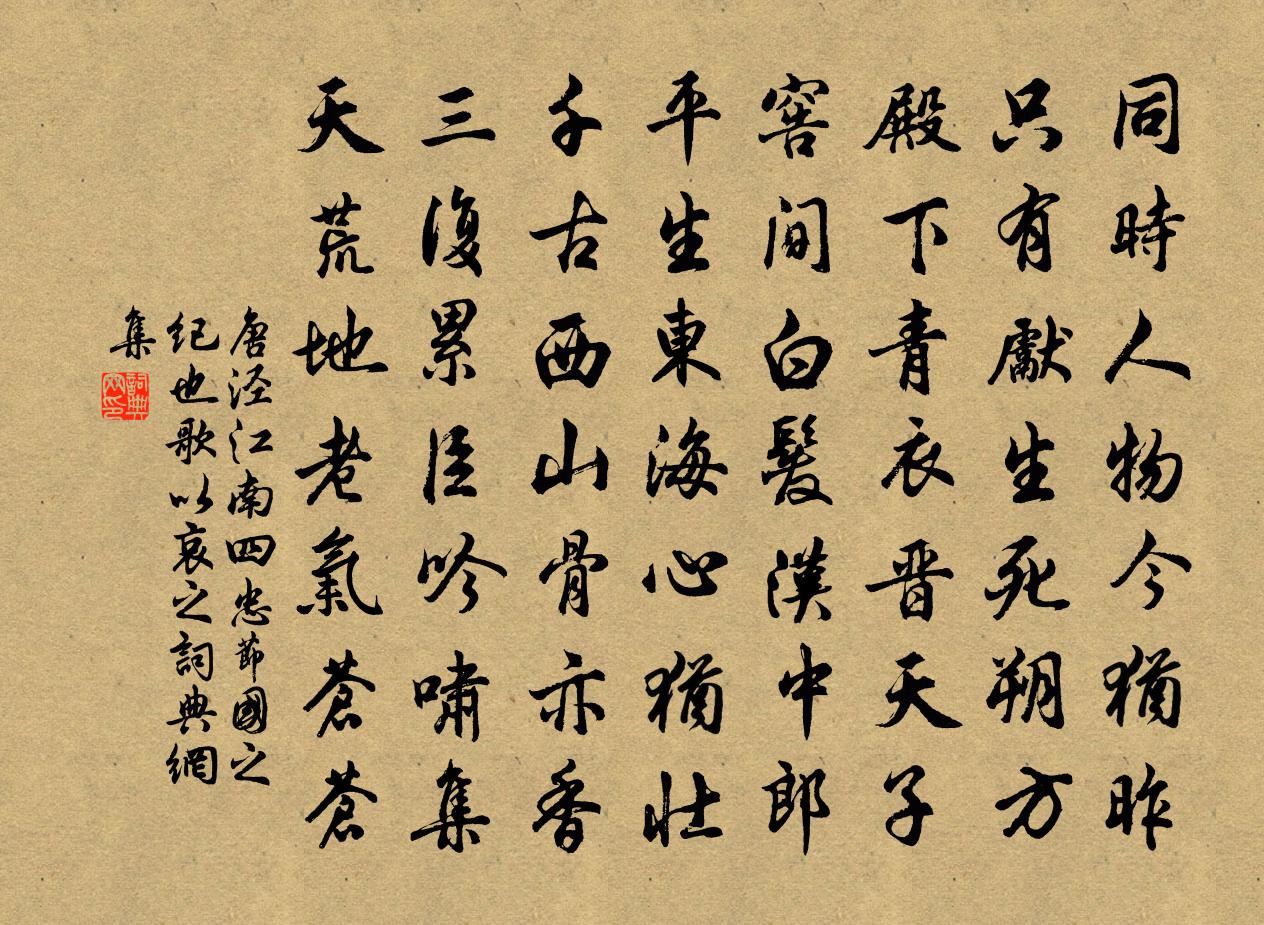 同時人物今猶昨
只有獻生死朔方
殿下青衣晋天子
窖間白髮漢中郎
平生東海心猶壯
千古西山骨亦香
三復累臣吟嘯集
天荒地老氣蒼蒼
唐涇江南四忠節國之
紀也歌以哀之詞典網
集
詞典網印